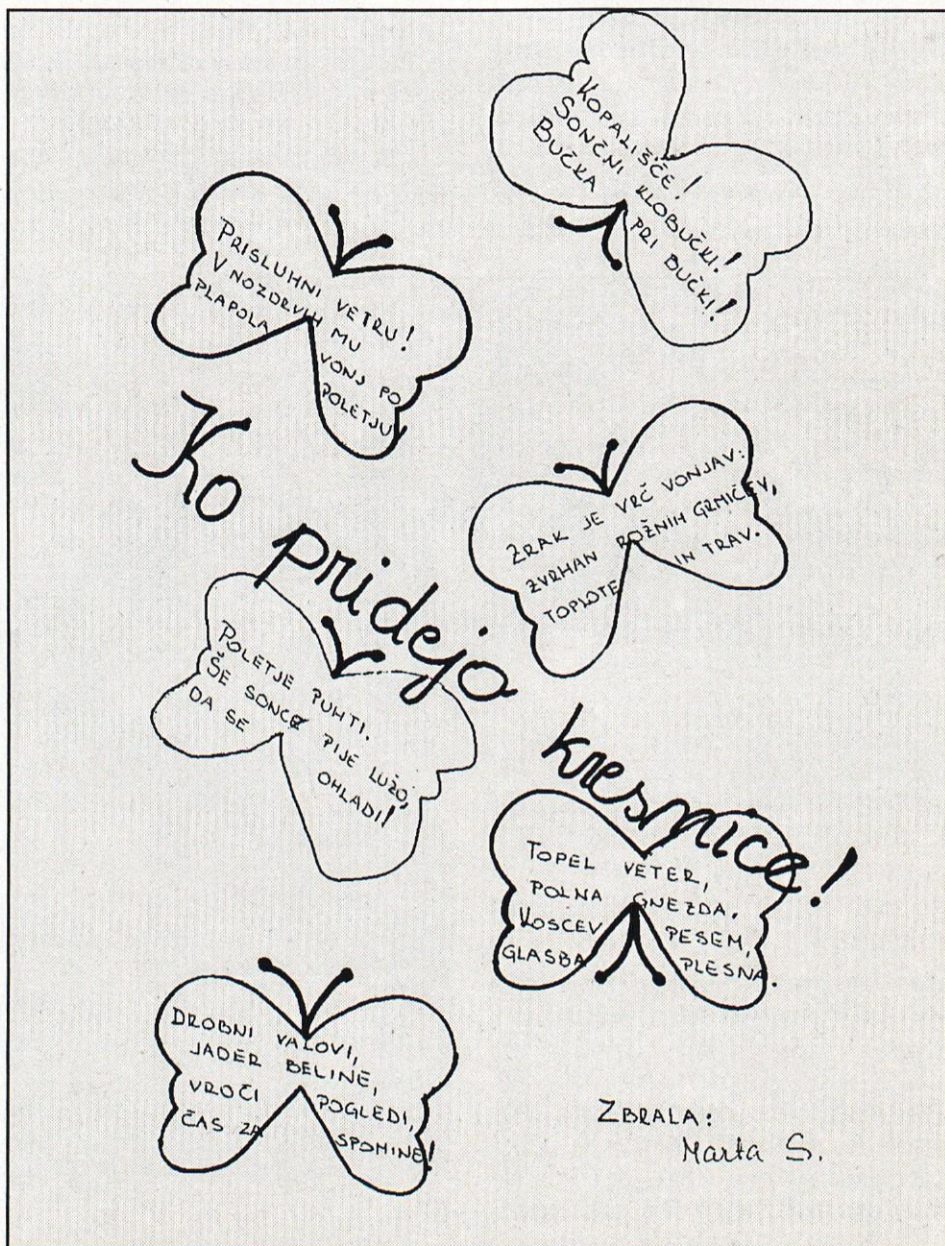 KOPALIŠČE!
SONČNI KLOBUČKI!
BUČKA PRI BUČKI!
PRISLUHNI VETRU!
V NOZDRVIH MU
PLAPOLA VONJ PO
POLETJU!
Ko pridejo kresnice!
ZRAK JE VRČ VONJAV:
ZVRHAN ROŽNIH GRMIČEV,
TOPLOTE IN TRAV.
POLETJE PUHTI.
ŠE SONCE PIJE LUŽO,
DA SE OHLADI!
TOPEL VETER,
POLNA GNEZDA,
KOSCEV PESEM,
GLASBA PLESNA.
DROBNI VALOVI,
JADER BELINE,
VROČI POGLEDI,
ČAS ZA SPOMINE!
ZBRALA:
Marta S.